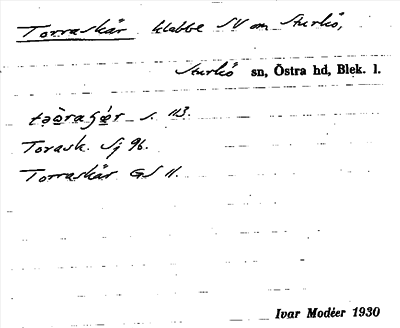 Torraskär klabbe SV om Sturkö,
Sturkö sn, Östra hd, Blek. l.
s. 113.
Torask. Sj 96.
Torraskär GS 11.
Ivar Modéer 1930